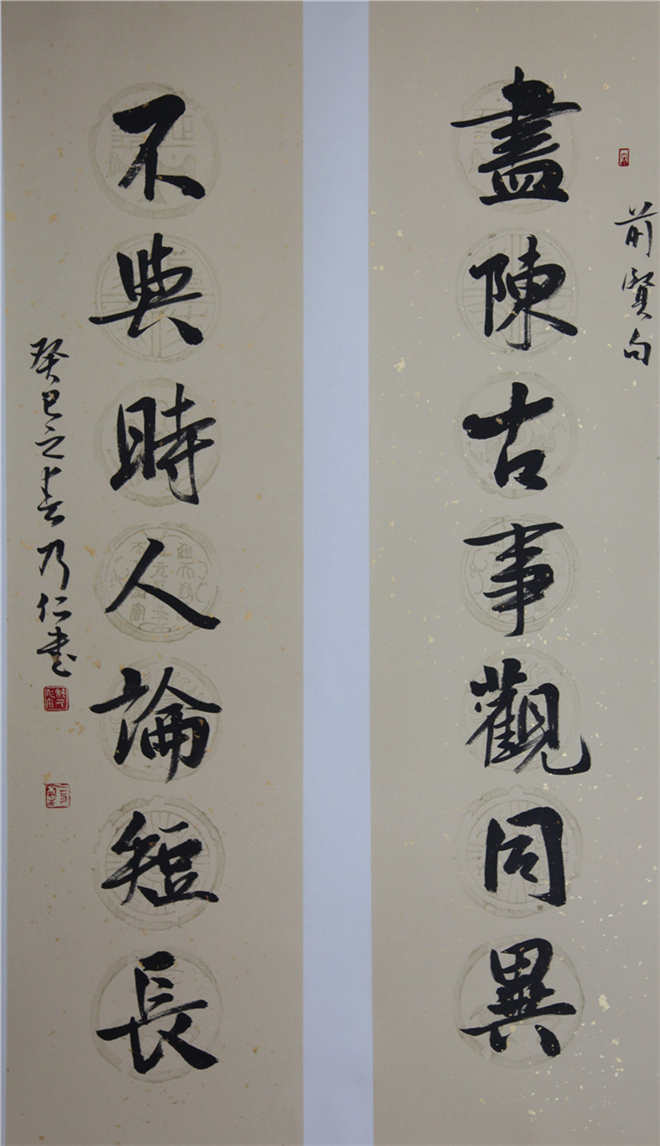 前賢句
盡陳古事觀同異
不與時人論短長
癸巳之春乃仁書